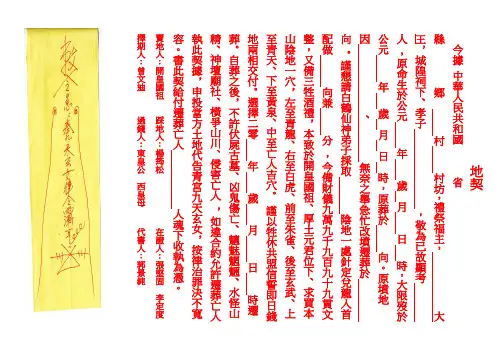 地契
今據 中華人民共和國 省
縣 鄉 村 村坊，禮祭福主， 大
王，城隍祠下、孝子 ，敬為已故顯考
人，原命生於公元 年 歲 月 日 時，大限歿於
公元 年 歲 月 日 時，原葬於 向。原墳地
因 、 無奈之舉急忙改墳遷葬於
向。謹懇請白鶴仙神弟子採取 陰地一處針定兌龍入首
配做 向兼 分，今備財儀九萬九千九百九十九貫文
整，又備三牲酒禮，本致於開皇國祖、厚土元君位下、求賣本
山陰地一穴，左至青龍、右至白虎、前至朱雀、後至玄武、上
至青天、下至黃泉、中至亡人吉穴。 謹以牲休共盟信誓即日錢
地兩相交付。選擇二零 年 歲 月 日 時遷
葬。自葬之後，不許伏屍古墓、凶鬼傷亡、魑魅魍魎、水怪山
精、神壇廟社、橫爭山川、侵害亡人，如違合約允許遷葬亡人
執此契據，申投當方土地代告青宮九天玄女，按律治罪決不寬
容。書此契給付遷葬亡人 人魂下收執為憑。
賣地人：開皇國祖 踩地人：楊筠松 在證人：張堅固 李定度
擇期人：曾文迪 過錢人：東皇公 西皇母 代書人：郭景純